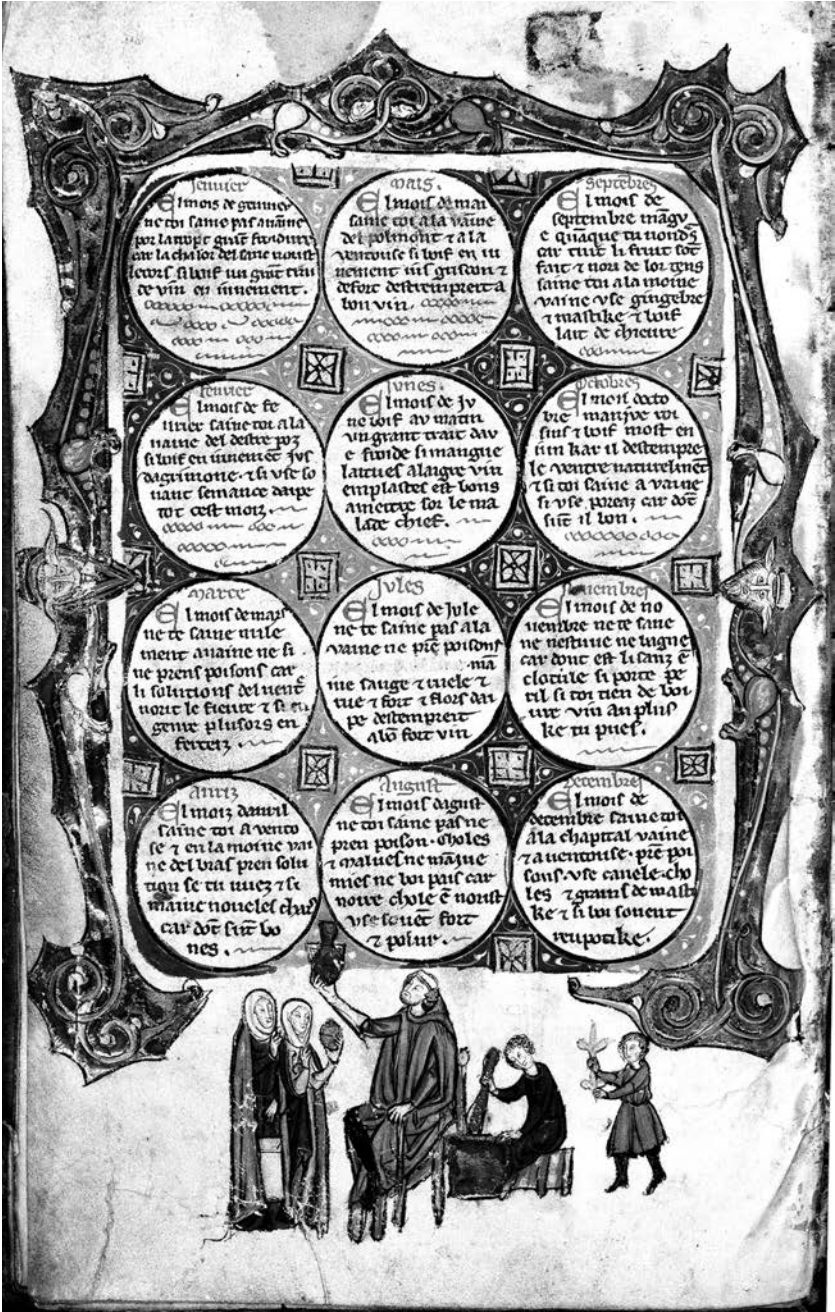 Jenvier
El mois de genuier
ne toi sainie pas a uaine
por la
car la chalor del sanc
si boif un grant trait
de vin en iunement.
Feurier
El mois de fe
urier saine toi a la
uaine del destre poz
si boif en iunement jus
dagrimone. & si use so
uant semance dape
tot cest moiz.
Marce
El mois de mars
ne te saine nule
ment a uaine ne si
ne prens poisons car
li solutions del uent
norit le fieure & si en
genre plusors en
fertez.
Auriz
El moiz dauril
saine toi a vento
se & en la moine vai
ne del bras pren solu
tion se tu uuez & si
maiue noueles chars
car dōt sūt bo
nes.
Mais.
El mois de mai
saine toi a la vaine
del polmont & a la
ventouse si boif en iu
nement
defort destemprert a
bon vin.
Junes.
El mois de jv
ne boif av matin
un grant trait dav
e froide si mangue
laitues alaigre vin
emplastes est bons
a metre sor le ma
lade chief.
Jules
El mois de Jule
ne te saine pas a la
vaine ne prē poisons
ma
iue sauge & ruele &
rue & fort & flors dai
pe destemprert
a bō fort vin
August
El mois dagust
ne toi saine pas ne
pren poison. choles
& malues ne māiue
mies ne boi pais car
noire chole ē norist
use souēt fort
& poliur.
Septembres
El mois de
septembre māgv
e quāque tu uondꝰ
car tuit li fruit sōt
fait & nori de lor tens
saine toi a la moine
vaine vse gingebre
& mastike & boif
lait de chieure
Octobres
El mois docto
bre manjve roi
sins & boif most en
kar il destempre
le ventre naturelmēt
& si toi saine a vaine
si vse poreaz car dōt
sūt il bon.
Nouembres
El mois de no
uembre ne te saine
ne nestuue ne baigne
car dont est li sanz ē
clotule si porte pe
ril si toi tien de boi
ure vin au plus
ke tu pues.
Decembres
El mois de
decembre saine toi
a la chapital vaine
& a uentouse. prē poi
sons. vse canele. cho
les & grains de masti
ke & si boi souent
reupotike.